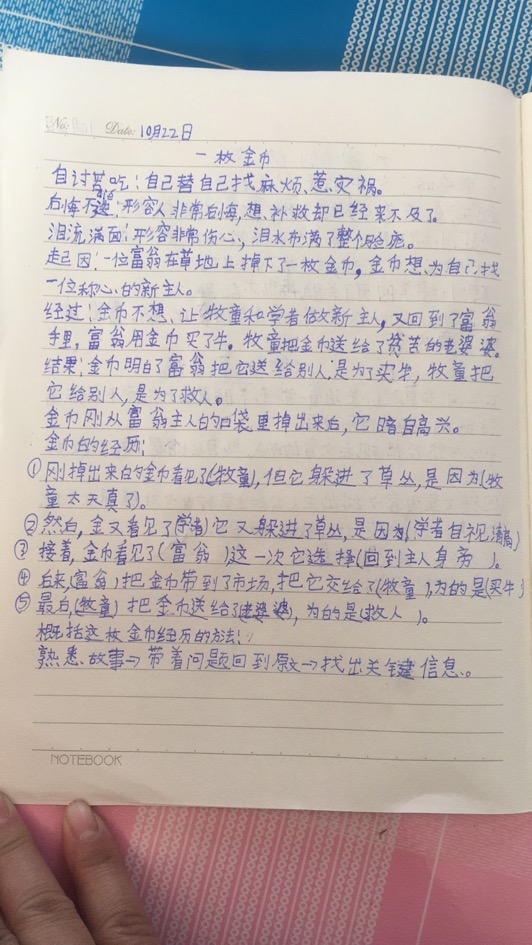 No: Date: 10月22日
一枚金币
自讨苦吃:自己替自己找麻烦、惹灾祸。
后悔不迭:形容人非常后悔,想补救却已经来不及了。
dié
泪流满面:形容非常伤心,泪水布满了整个脸庞。
起因:一位富翁在草地上掉下了一枚金币,金币想为自己找
一位称心的新主人。
经过:金币不想让牧童和学者做新主人,又回到了富翁
手里,富翁用金币买了牛。牧童把金币送给了贫苦的老婆婆。
结果:金币明白了富翁把它送给别人是为了买牛,牧童把
它给别人,是为了救人。
金币刚从富翁主人的口袋里掉出来后,它暗自高兴。
金币的经历:
①刚掉出来的金币看见了(牧童),但它躲进了草丛,是因为(牧
童太天真了)。
②然后,金又看见了(学者)它又躲进了草丛,是因为(学者自视清高)
③接着,金币看见了(富翁)这一次它选择(回到主人身旁)。
④后来,(富翁)把金币带到了市场,把它交给了(牧童),为的是(买牛)
⑤最后,(牧童)把金币送给了(老婆婆),为的是(救人)。
概括这枚金币经历的方法:
熟悉故事→带着问题回到原文→找出关键信息。
NOTEBOOK